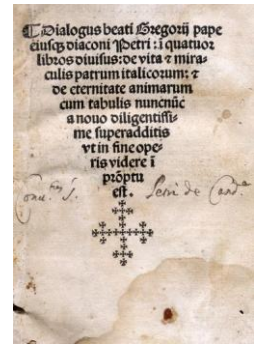 Dialogus beati Gregorij pape
eiusq̃ diaconi Petri: ĩ quatuor
libros diuisus: de vita ⁊ mira-
culis patrum italicorum: ⁊
de eternitate animarum
cum tabulis nuncnūc
a nouo diligentissi-
me superadditis
vt in fine ope-
ris videre ĩ
prōptu
est.